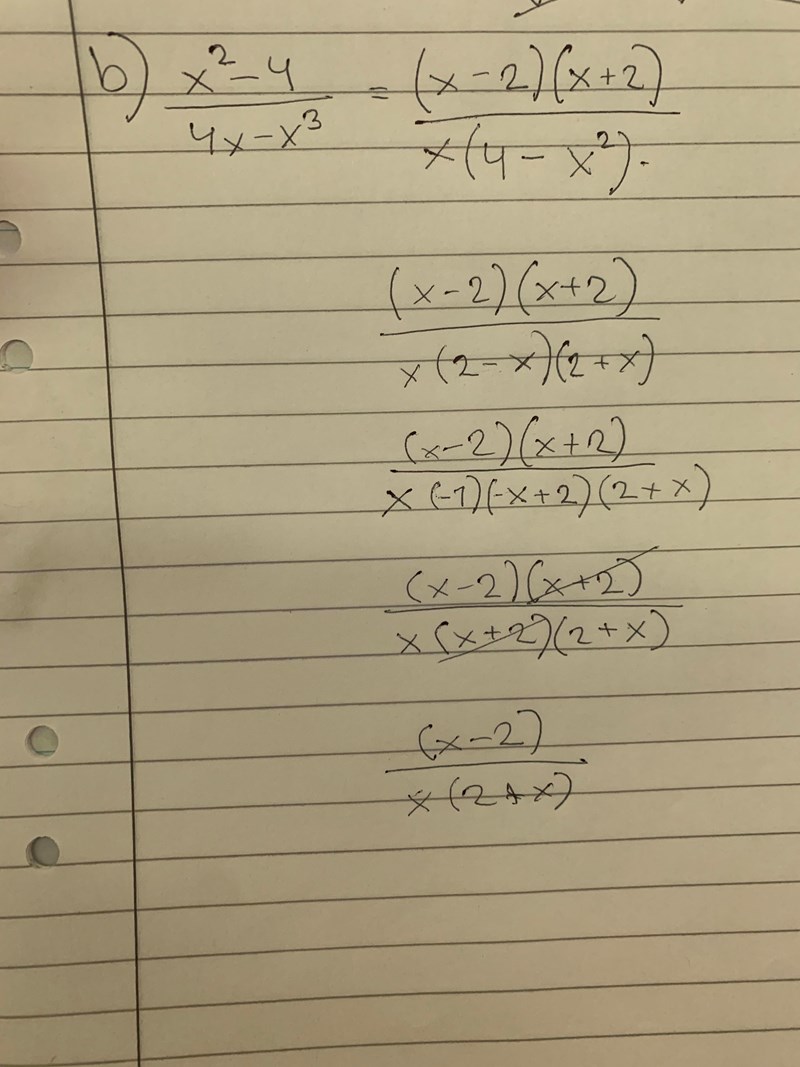 b) (x²-4)/(4x-x³) = ((x-2)(x+2))/(x(4-x²)).
((x-2)(x+2))/(x(2-x)(2+x))
((x-2)(x+2))/(x(-1)(-x+2)(2+x))
((x-2)(x+2))/(x(x+2)(2+x))
(x-2)/(x(2+x))